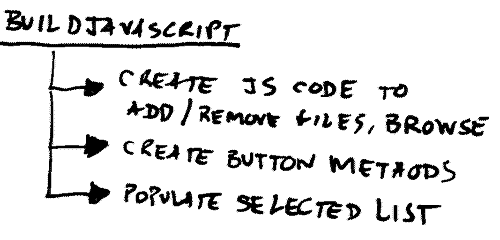 BUILDJAVASCRIPT
CREATE JS CODE TO
ADD/REMOVE FILES, BROWSE
CREATE BUTTON METHODS
POPULATE SELECTED LIST